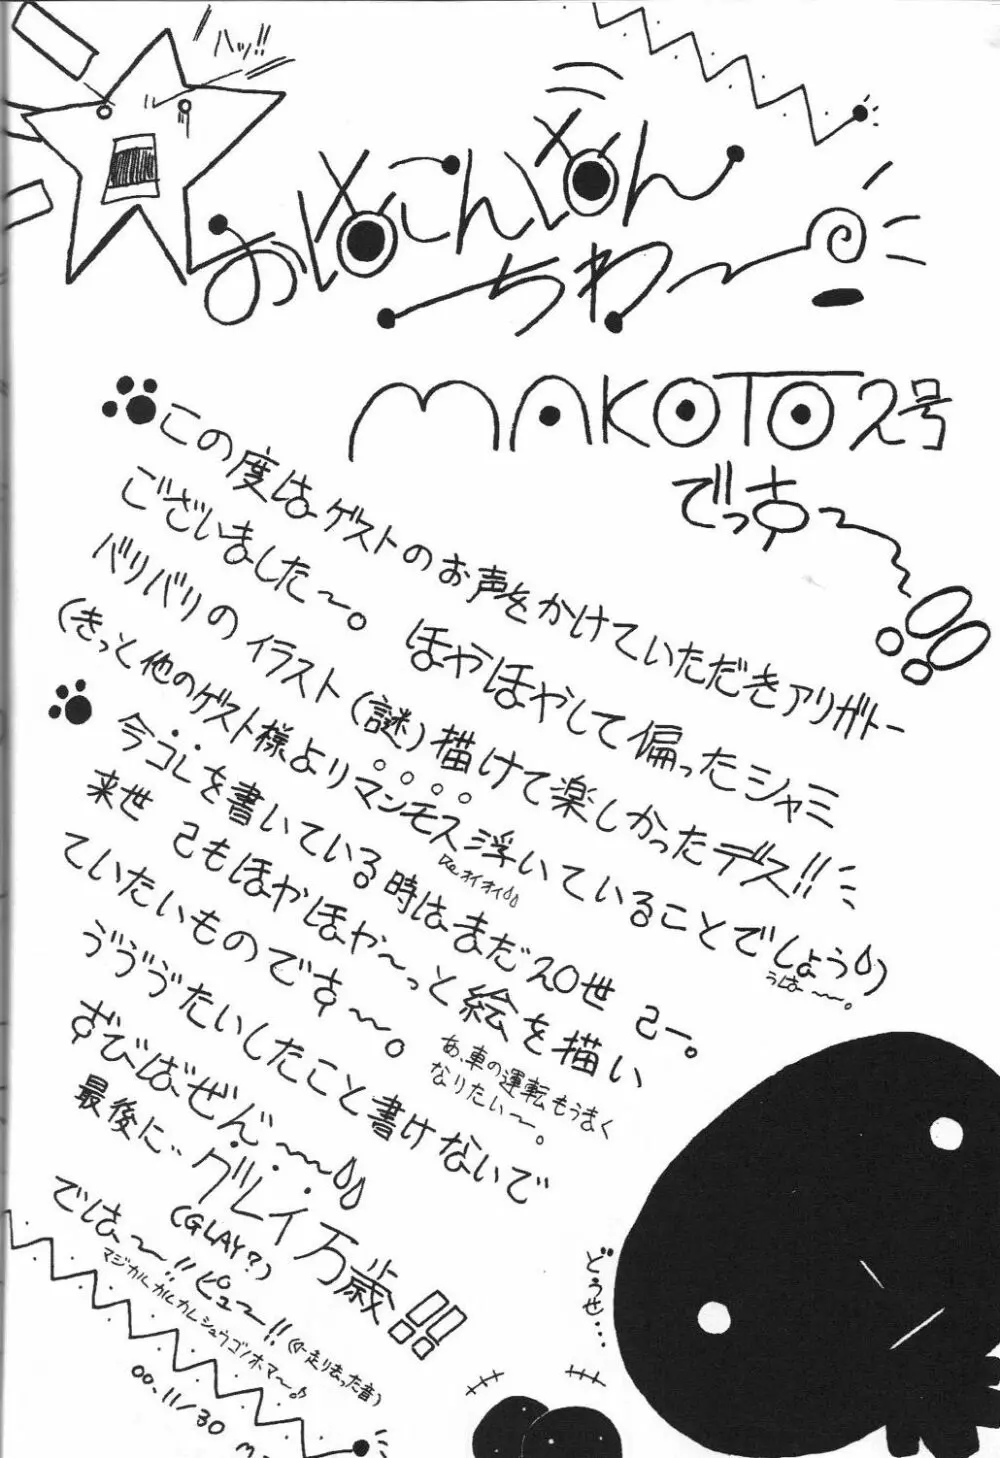 ハッ!!
おはこんばん
ちわ〜
MAKOTO2号
でっす〜!!
この度はゲストのお声をかけていただきアリガトー
ございました〜。ほやほやして偏ったシャミ
バリバリのイラスト(謎)描けて楽しかったデス!!
(きっと他のゲスト様よりマンモス浮いていることでしょう)
うはー〜。
オイオイ
今コレを書いている時はまだ20世己ー。
来世己もほやほや〜っと絵を描い
ていたいものです〜。
あ、車の運転もうまく
なりたい〜。
ゔゔゔたいしたこと書けないで
ずびばぜん〜
最後に…グレイ万歳!!
(GLAY?)
でわ〜!!ピュ〜!!(←走り去った音)
マジカルカルカルシュウゴノホマ〜♪
00.11/30
どうせ…